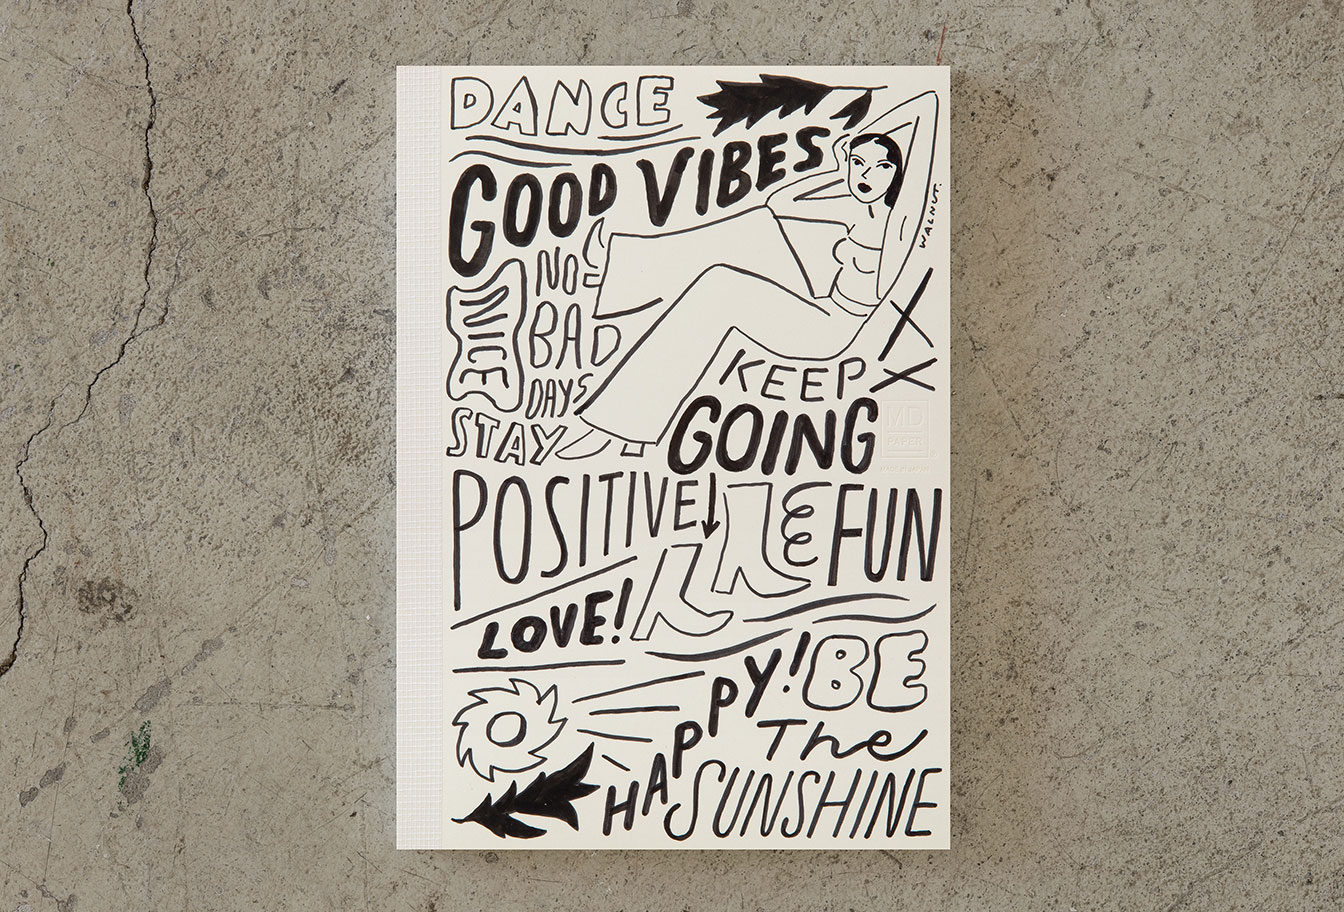 DANCE
GOOD VIBES
WALNUT.
NO
BAD
DAYS
NICE
STAY
KEEP
GOING
MD
PAPER
MADE IN JAPAN
POSITIVE
FUN
LOVE!
HAPPY!
BE
The
SUNSHINE